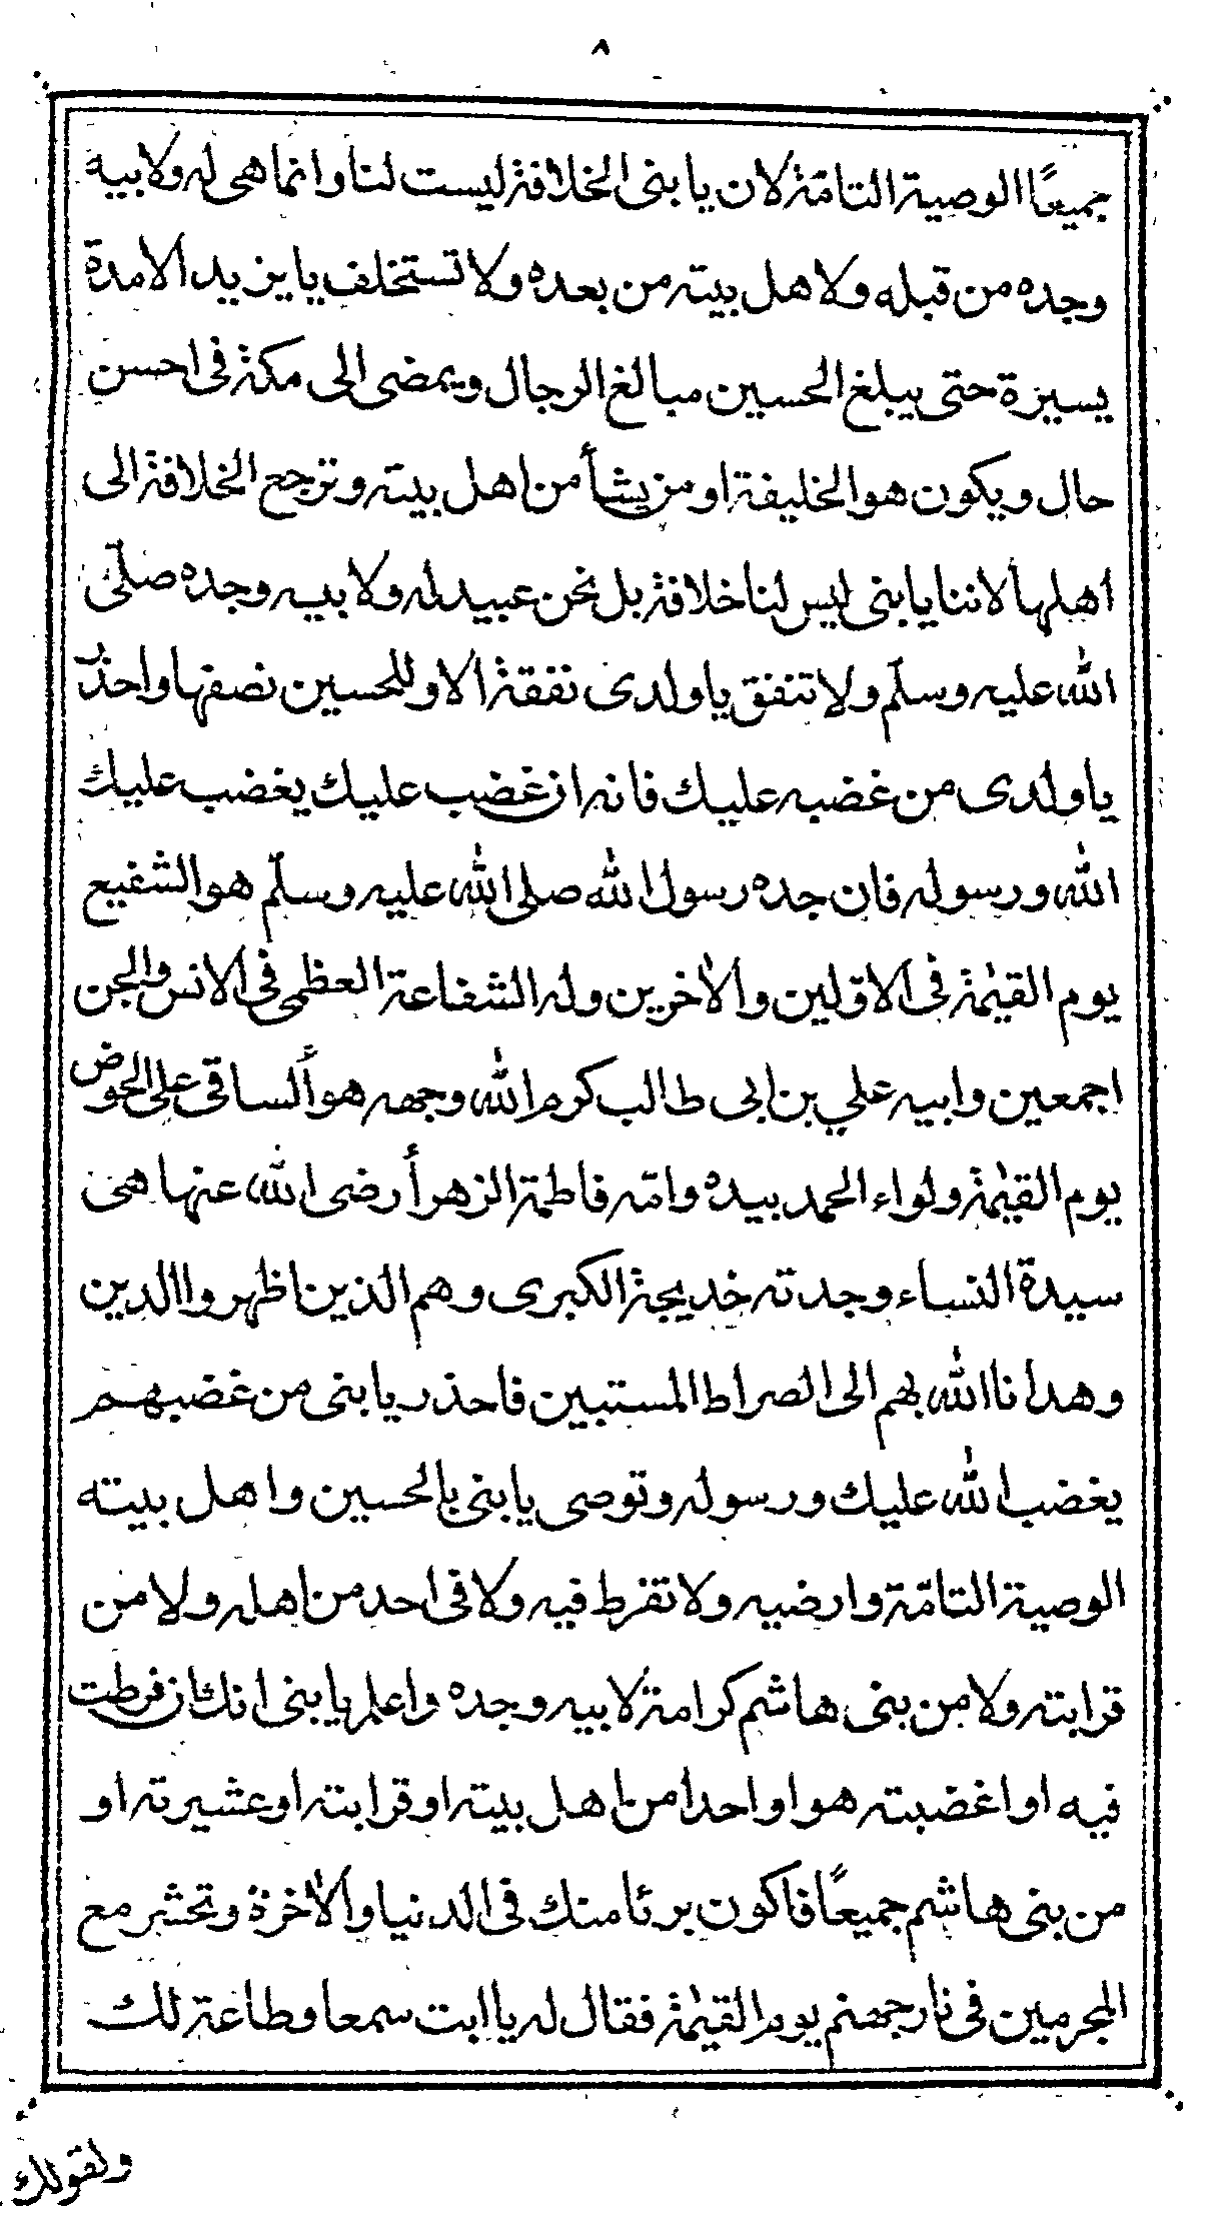 ٨
جميعًا الوصية التامّة لان يا بنى الخلافة ليست لنا وانما هى له ولابيه
وجده من قبله ولاهل بيته من بعده ولا تستخلف يا يزيد الامدة
يسيرة حتى يبلغ الحسين مبالغ الرجال ويمضى الى مكة فى احسن
حال ويكون هو الخليفة او من يشأ من اهل بيته وترجع الخلافة الى
اهلها لاننا يا بنى ليس لنا خلافة بل نحن عبيد له ولابيه وجده صلّى
الله عليه وسلّم ولا تنفق يا ولدى نفقة الا وللحسين نصفها واحذر
يا ولدى من غضبه عليك فانه ان غضب عليك يغضب عليك
الله ورسوله فان جده رسول الله صلى الله عليه وسلّم هو الشفيع
يوم القيٰمة فى الاوّلين والاٰخرين وله الشفاعة العظمى فى الانس والجن
اجمعين وابيه علي بن ابى طالب كرم الله وجهه هو ألساقى على الحوض
يوم القيٰمة ولواء الحمد بيده وامّه فاطمة الزهرأ رضى الله عنها هى
سيدة النساء وجدته خديجة الكبرى وهم الذين اظهروا الدين
وهدانا الله بهم الى الصراط المستبين فاحذر يا بنى من غضبهم
يغضب الله عليك ورسوله وتوصى يا بنى بالحسين واهل بيته
الوصية التامّة وارضيه ولا تفرط فيه ولا فى احد من اهله ولا من
قرابته ولا من بنى هاشم كرامة لابيه وجده واعلم يا بنى انك ان فرطت
فيه او اغضبته هو او احدا من اهل بيته او قرابته او عشيرته او
من بنى هاشم جميعًا فاكون برئا منك فى الدنيا والاٰخرة وتحشر مع
المجرمين فى نار جهنم يوم القيٰمة فقال له يا ابت سمعا وطاعة لك
ولقولك